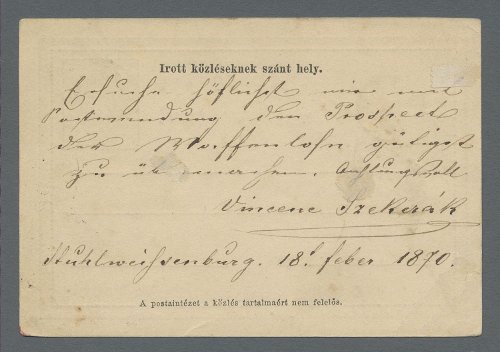 Irott közléseknek szánt hely.
Ersuche höflichst mir mit
Postwendung den Prospect
der Waffenlohn gütigst
zu übermachen. Achtungsvoll
Vincenc Szekerák
Stuhlweissenburg. 18t feber 1870.
A postaintézet a közlés tartalmaért nem felelős.